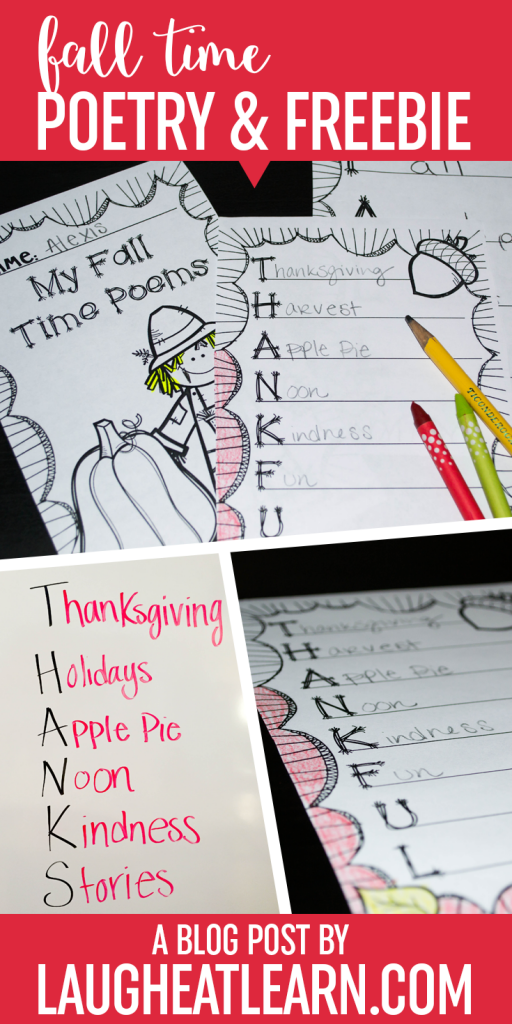 fall time
POETRY & FREEBIE
NAME: Alexis
My Fall
Time Poems
all
Thanksgiving
Harvest
Apple Pie
Noon
Kindness
Fun
U
TICONDEROGA
Thanksgiving
Holidays
Apple Pie
Noon
Kindness
Stories
Thanksgiving
Harvest
Apple Pie
Noon
Kindness
Fun
U
L
A BLOG POST BY
LAUGHEATLEARN.COM